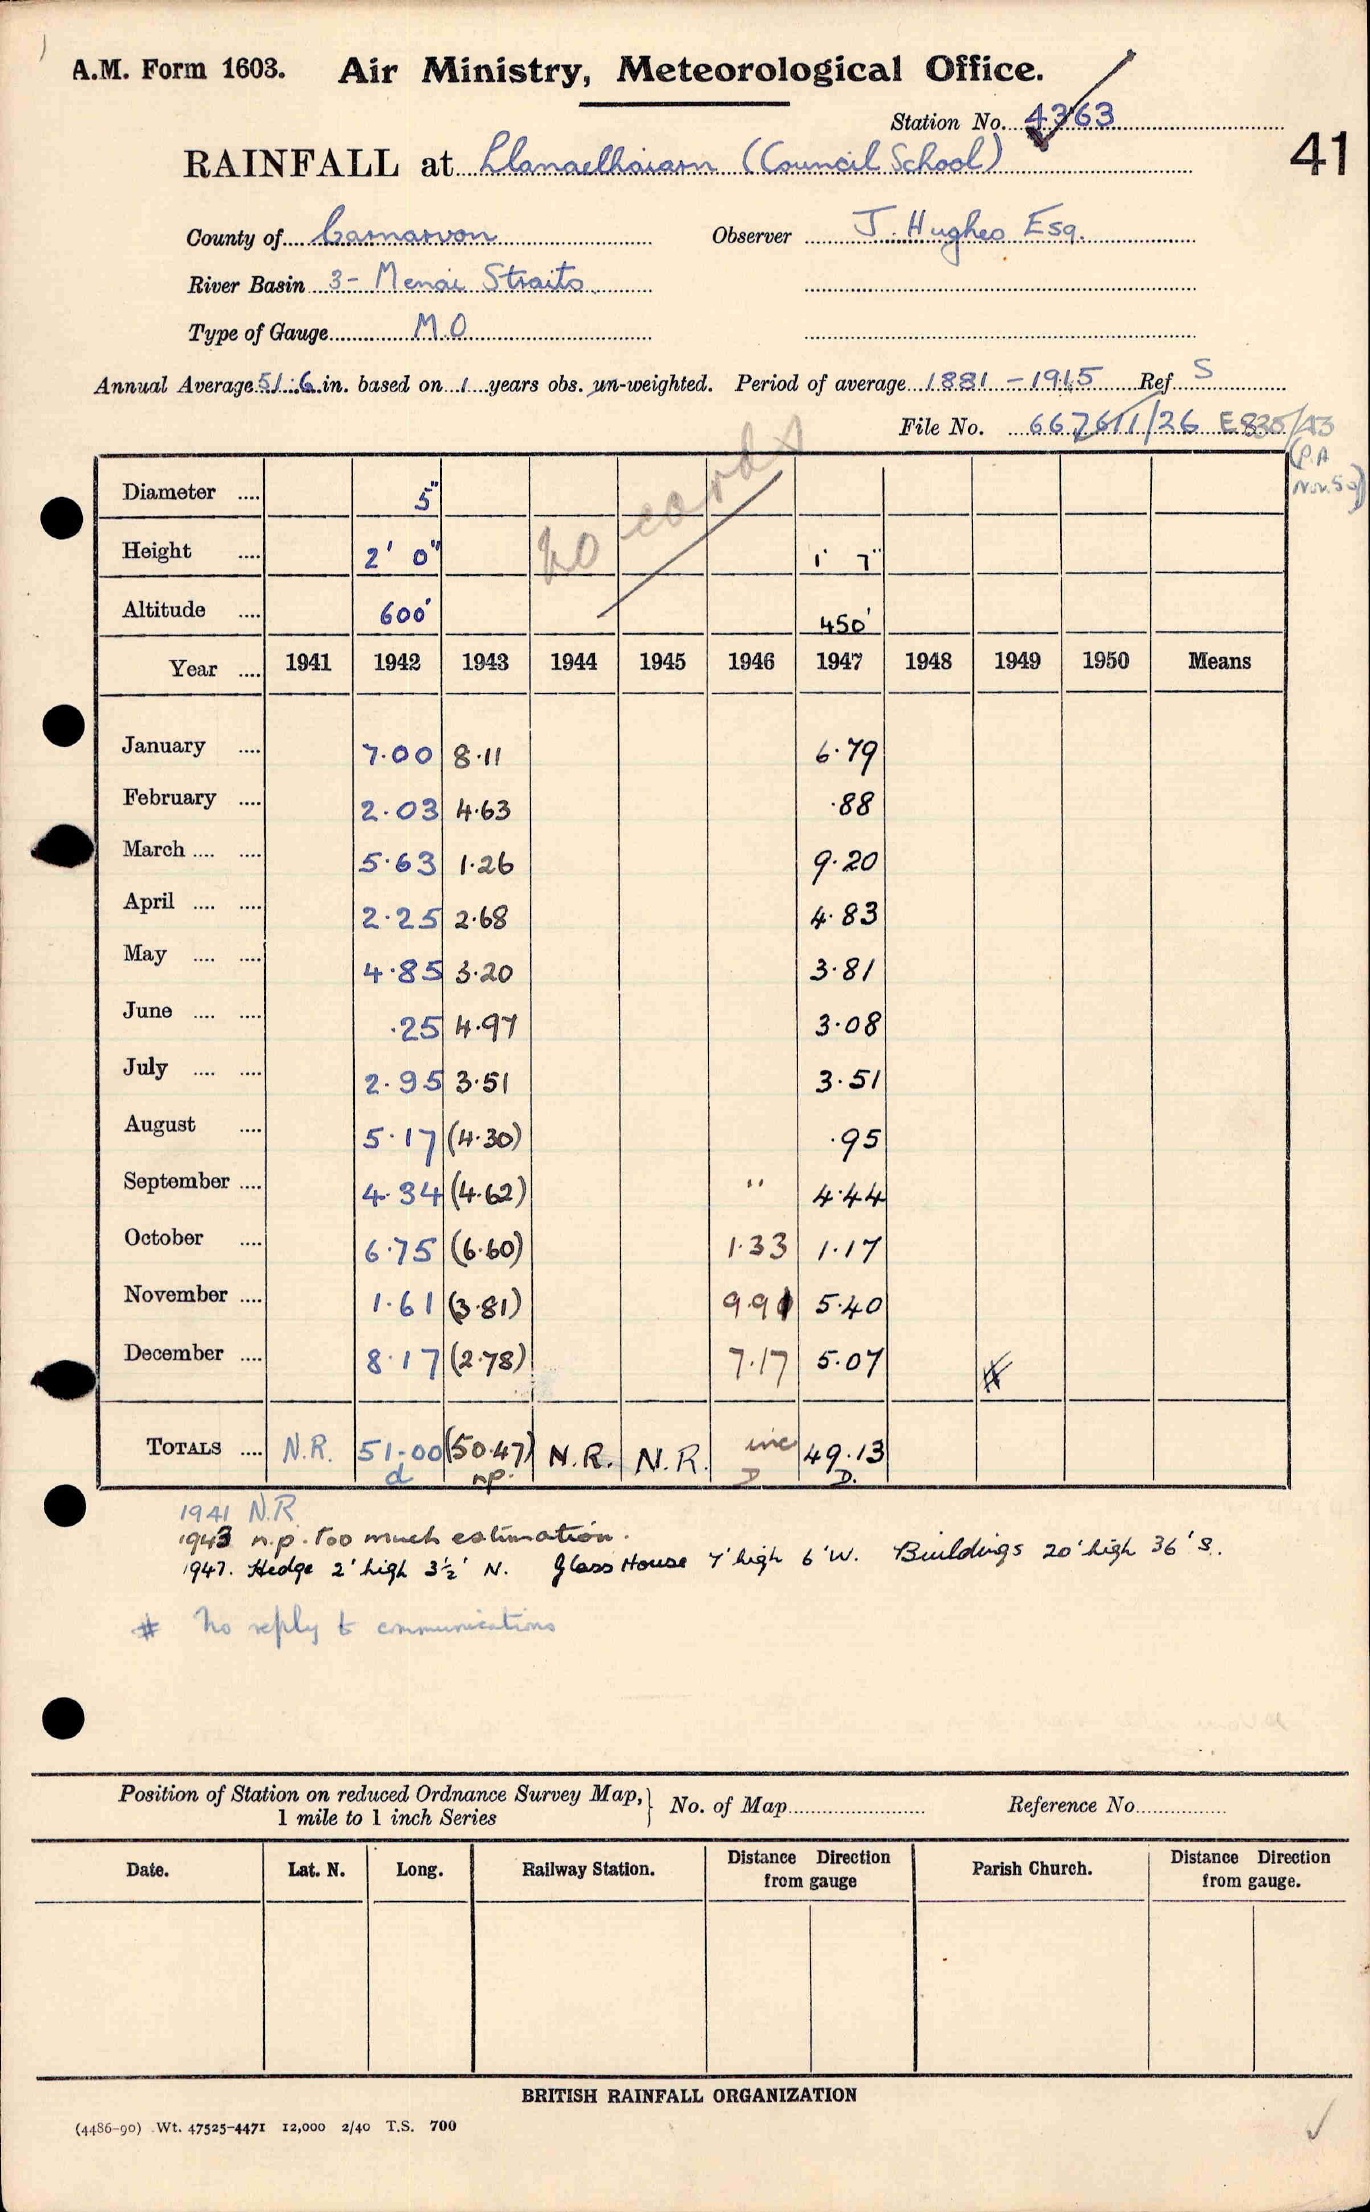 A.M. Form 1603. Air Ministry, Meteorological Office.
Station No. 4363
41
RAINFALL at Llanaelhaiarn (Council School)
County of Carnarvon Observer J. Hughes Esq.
River Basin 3- Menai Straits
Type of Gauge M.O
Annual Average 51.6 in. based on 1 years obs. un-weighted. Period of average 1881 - 1915 Ref S
File No. 667611/26 E835/43
(P.A
Nov. 50)
no cards
Diameter .... 5"
Height .... 2' 0" 1' 7"
Altitude .... 600' 450'
Year .... 1941 1942 1943 1944 1945 1946 1947 1948 1949 1950 Means
January .... 7.00 8.11 6.79
February .... 2.03 4.63 .88
March .... .... 5.63 1.26 9.20
April .... .... 2.25 2.68 4.83
May .... .... 4.85 3.20 3.81
June .... .... .25 4.97 3.08
July .... .... 2.95 3.51 3.51
August .... 5.17 (4.30) .95
September .... 4.34 (4.62) " 4.44
October .... 6.75 (6.60) 1.33 1.17
November .... 1.61 (3.81) 9.91 5.40
December .... 8.17 (2.78) 7.17 5.07 #
TOTALS .... N.R. 51.00 (50.47) N.R. N.R. inc 49.13
d n.p. D D.
1941 N.R.
1943 n.p. too much estimation.
1947. Hedge 2' high 3½' N. Glass House 7' high 6' W. Buildings 20' high 36' S.
# No reply to communications
Position of Station on reduced Ordnance Survey Map, } No. of Map Reference No
1 mile to 1 inch Series
Date. Lat. N. Long. Railway Station. Distance from gauge Direction Parish Church. Distance from gauge. Direction
BRITISH RAINFALL ORGANIZATION
(4486-90) Wt. 47525-4471 12,000 2/40 T.S. 700